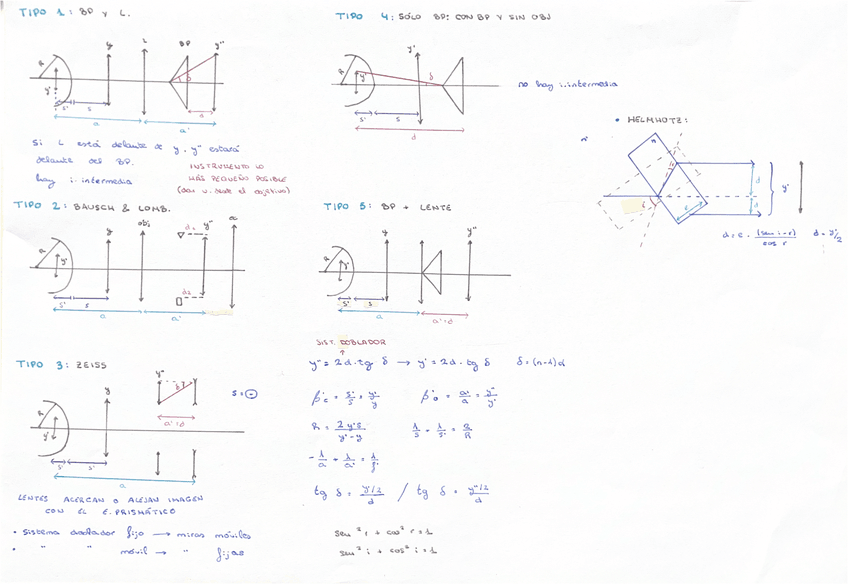 TIPO 1: BP Y L.
R
y'
s'
s
a
y
L
BP
δ
y''
d
a'
Si L está delante de y, y'' estará
delante del BP.
hay i. intermedia
INSTRUMENTO LO
MÁS PEQUEÑO POSIBLE
TIPO 2: BAUSCH & LOMB.
R
y'
s'
s
a
y
obj
d2
y''
d2
a'
oc
TIPO 3: ZEISS
R
y'
s'
s'
a
y
y''
δ
a'=d
s = (-)
LENTES ACERCAN O ALEJAN IMAGEN
CON EL E. PRISMÁTICO
• Sistema doblador fijo → miras móviles
• " " móvil → " fijas
TIPO 4: SÓLO BP: CON BP Y SIN OBJ
R
y'
s'
s
d
y'
δ
no hay i. intermedia
TIPO 5: BP + LENTE
R
y'
s'
s
a
y
a'=d
y''
SIST. DOBLADOR
y'' = 2d·tg δ → y' = 2d·tg δ δ = (n-1)α
β'c = s'/s = y'/y β'o = a'/a = y''/y'
R = 2y's/y'-y 1/s + 1/s' = 2/R
-1/a + 1/a' = 1/f'
tg δ = y'/2/d / tg δ = y''/2/d
sen² r + cos² r = 1
sen² i + cos² i = 1
• HELMHOTZ:
n'
n
i
e
d
d
y'
d = e · (sen i-r)/cos r d = y'/2